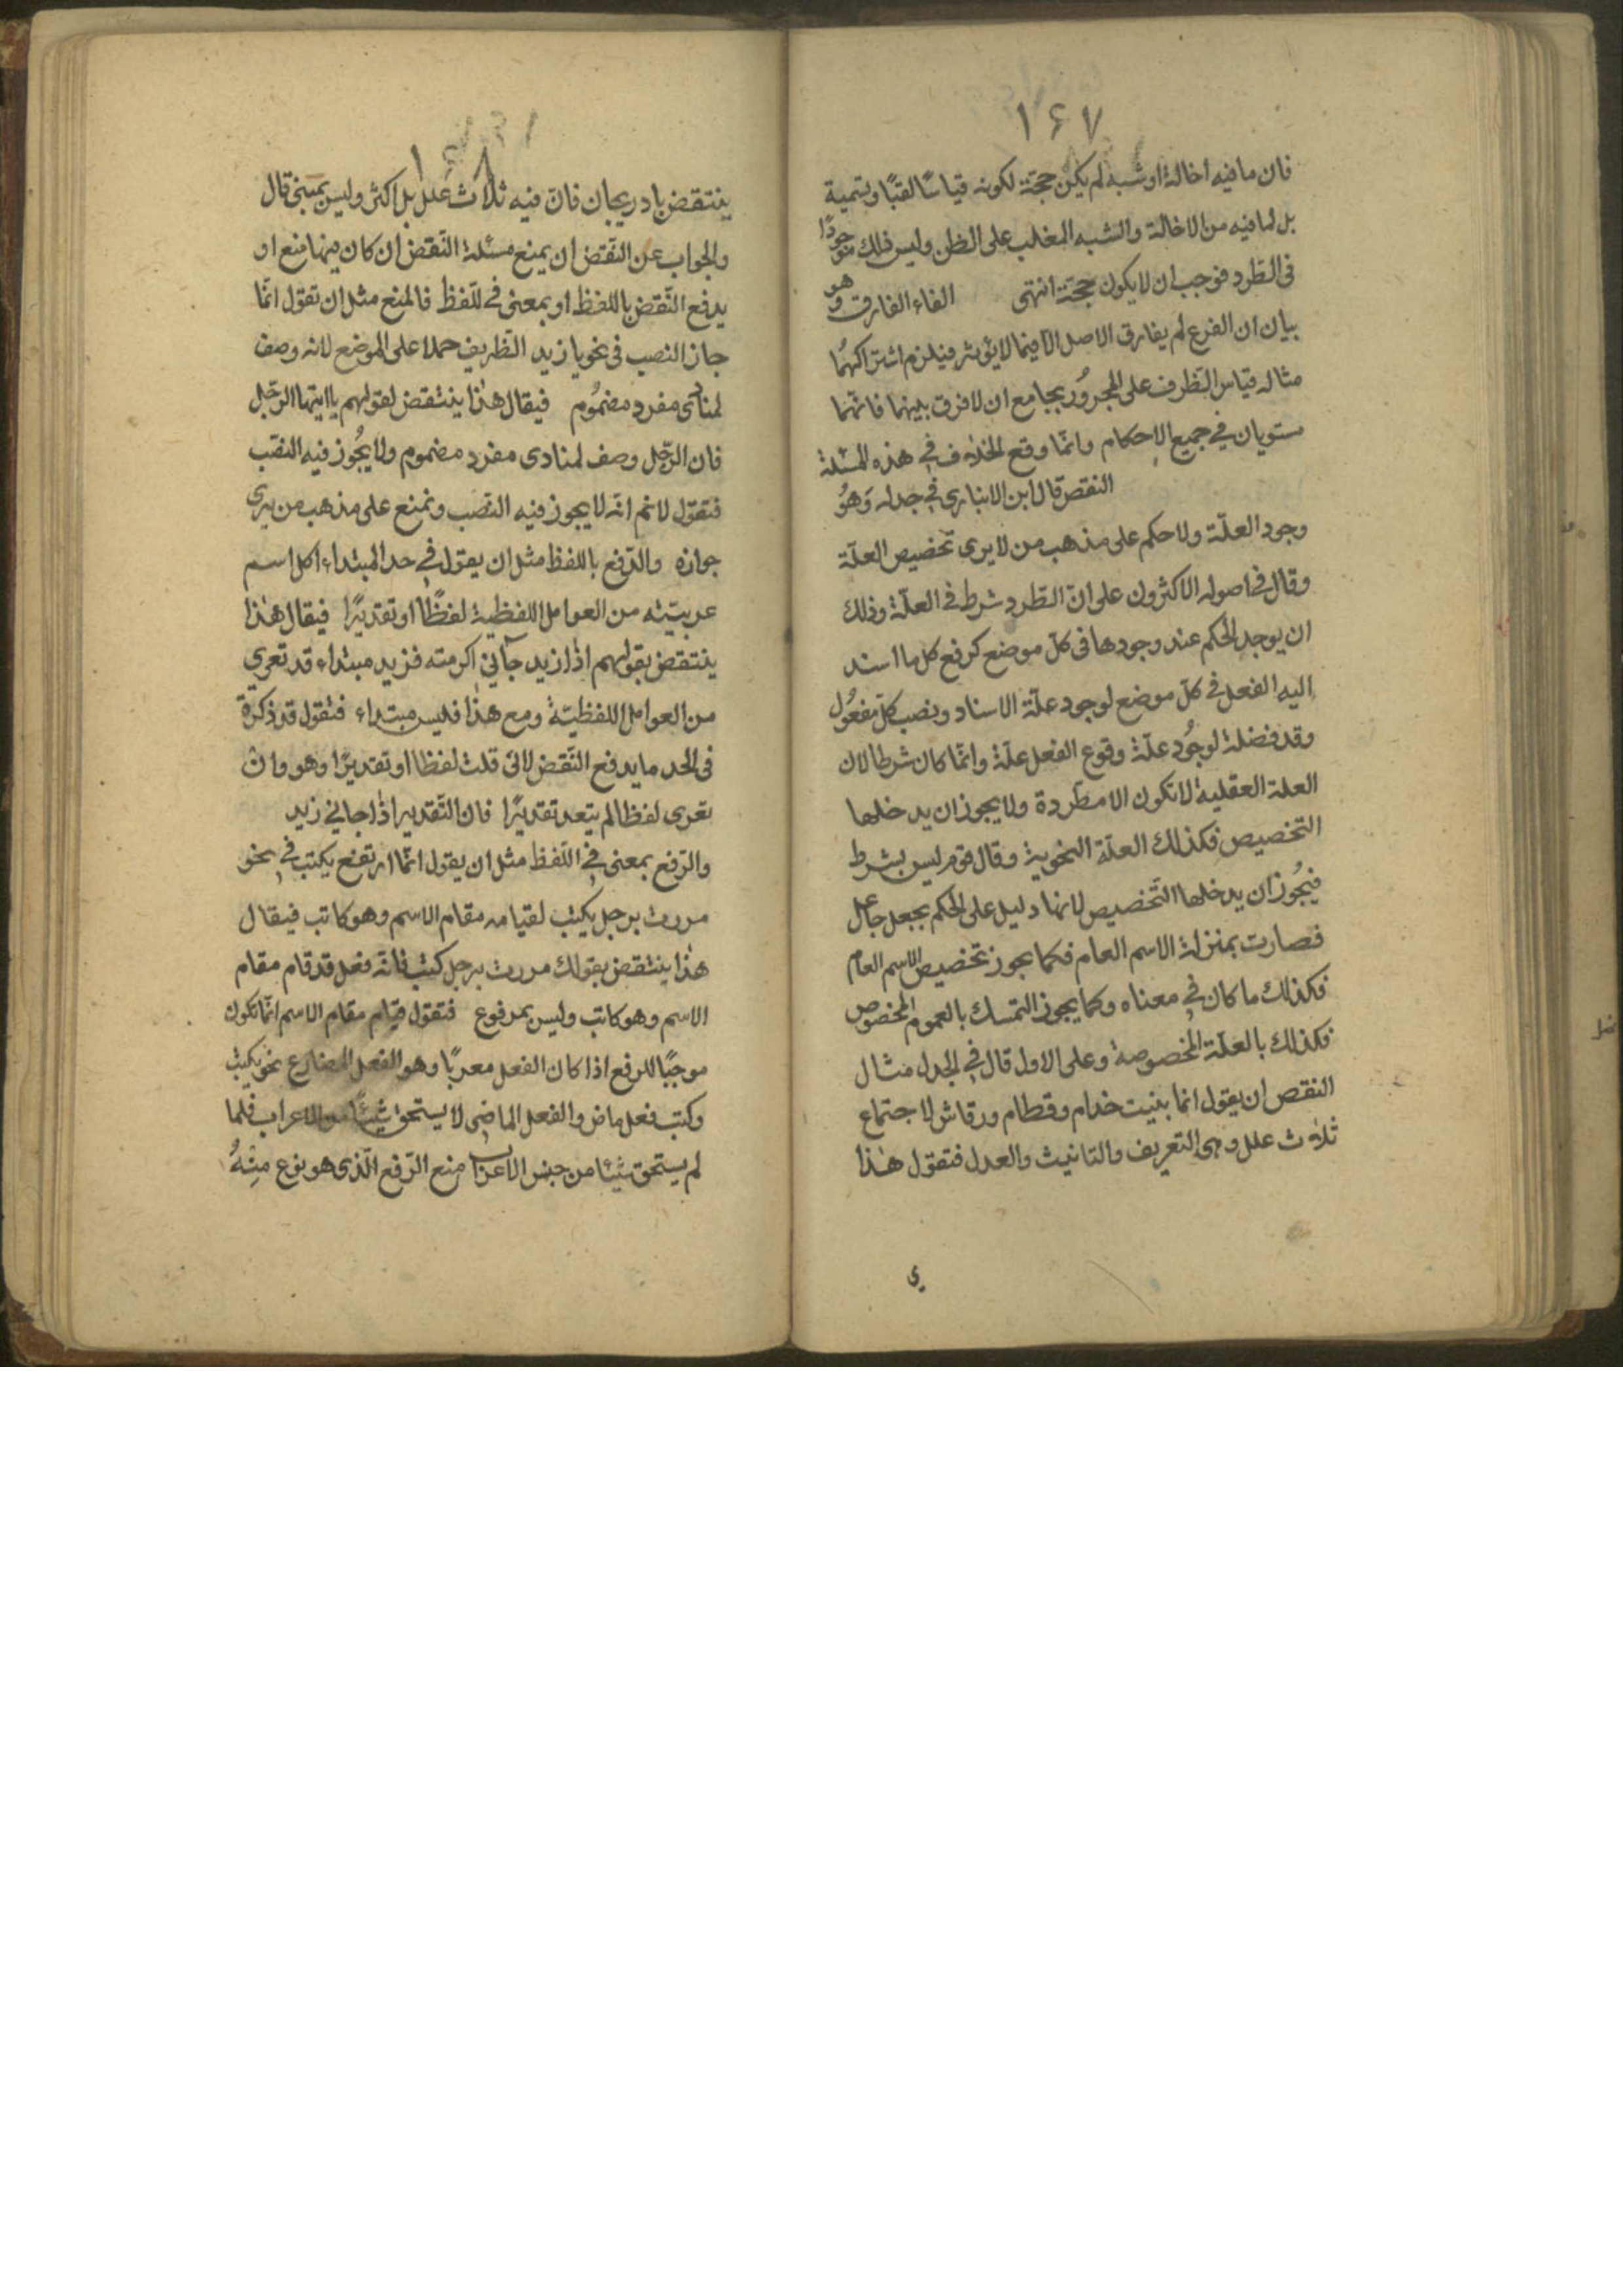 ١٦٧
فان ما فيه اخالة او شبه لم يكن حجّة لكونه قياسًا لقبًا وتسمية
بل لما فيه من الاخالة والشبه المغلب على الظن وليس ذلك موجودًا
فى الطّرد فوجب ان لا يكون حجّة انتهى الفاء الفارق وهو
بيان ان الفرع لم يفارق الاصل الا فيما لا يؤثر فيلزم اشتراكهُما
مثاله قياس الظّرف على المجرُور بجامع ان لا فرق بينهما فانّهما
مستويان في جميع الاحكام وانّما وقع الخلاف في هذه المسئلة
النقص قال ابن الانبارى في جدله وَهوُ
وجود العلّة ولا حكم على مذهب من لا يرى تخصيص العلّة
وقال فى اصوله الاكثرون على انّ الطّرد شرط فى العلّة وذلك
ان يوجد الحكم عند وجودها فى كلّ موضع كرفع كل ما اسند
اليه الفعل فى كلّ موضع لوجود علّة الاسناد ونصب كلّ مفعُول
وقد فضلة لوجُود علّة وقوع الفعل علّة وانّما كان شرطا لان
العلة العقلية لا تكون الا مطّردة ولا يجوز ان يدخلها
التخصيص فكذلك العلّة النحوية وقال قوم ليس بشرط
فيجُوز ان يدخلها التّخصيص لانها دليل على الحكم بجعل جاعل
فصارت بمنزلة الاسم العام فكما يجوز تخصيص الاسم العام
فكذلك ما كان في معناه وكما يجوز التمسك بالعموم المخصوص
فكذلك بالعلّة المخصوصة وعلى الاول قال في الجدل مثال
النقص ان يقول انما بنيت خدام وقطام ورقاش لاجتماع
ثلاث علل وهى التعريف والتانيث والعدل فتقول هذا
ي
١٦٨
ينتقض باذريجان فانّ فيه ثلاث علل بل اكثر وليس بمبنى قال
والجواب عن النّقض ان يمنع مسئلة النّقض ان كان فيها منع او
يدفع النّقض باللفظ او بمعنى في للّفظ فالمنع مثل ان تقول انّما
جاز النصب فى نحو يا زيد الظريف حملا على الموضع لانه وصف
لمنادى مفرد مضمُوم فيقال هذا ينتقض لقولهم يا ايتها الرّجل
فان الرّجل وصف لمنادى مفرد مضموم ولا يجُوز فيه النصب
فتقول لا نم انه لا يجوز فيه النصب ونمنع على مذهب من يرى
جوازه والدّفع باللفظ مثل ان يقول في حد المبتداء كل اسم
عريته من العوامل اللفظية لفظًا او تقديرًا فيقال هذا
ينتقض بقولهم اذا زيد جآني اكرمته فزيد مبتداء قد تعرى
من العوامل اللفظيّة ومع هذا فليس مبتداء فتقول قد ذكرة
فى الحد ما يدفع النّقض لانى قلت لفظا او تقديرًا وهو وان
تعرى لفظا لم يتعد تقديرًا فان التّقدير اذا جاني زيد
والرّفع بمعنى في اللّفظ مثل ان يقول انّما ارتفع يكتب في نحو
مررت برجل يكتب لقيامه مقام الاسم وهو كاتب فيقال
هذا ينتقض بقولك مررت برجل كتب فانّه فعل قد قام مقام
الاسم وهو كاتب وليس بمرفوع فتقول قيام مقام الاسم انّما تكون
موجبًا للرفع اذا كان الفعل معربًا وهو الفعل المضارع نحو يكتب
وكتب فعل ماض والفعل الماضى لا يستحق شيئًا من الاعراب فلما
لم يستحق شيئا من جنس الاعراب منع الرّفع الّذى هو نوع مِنْهُ